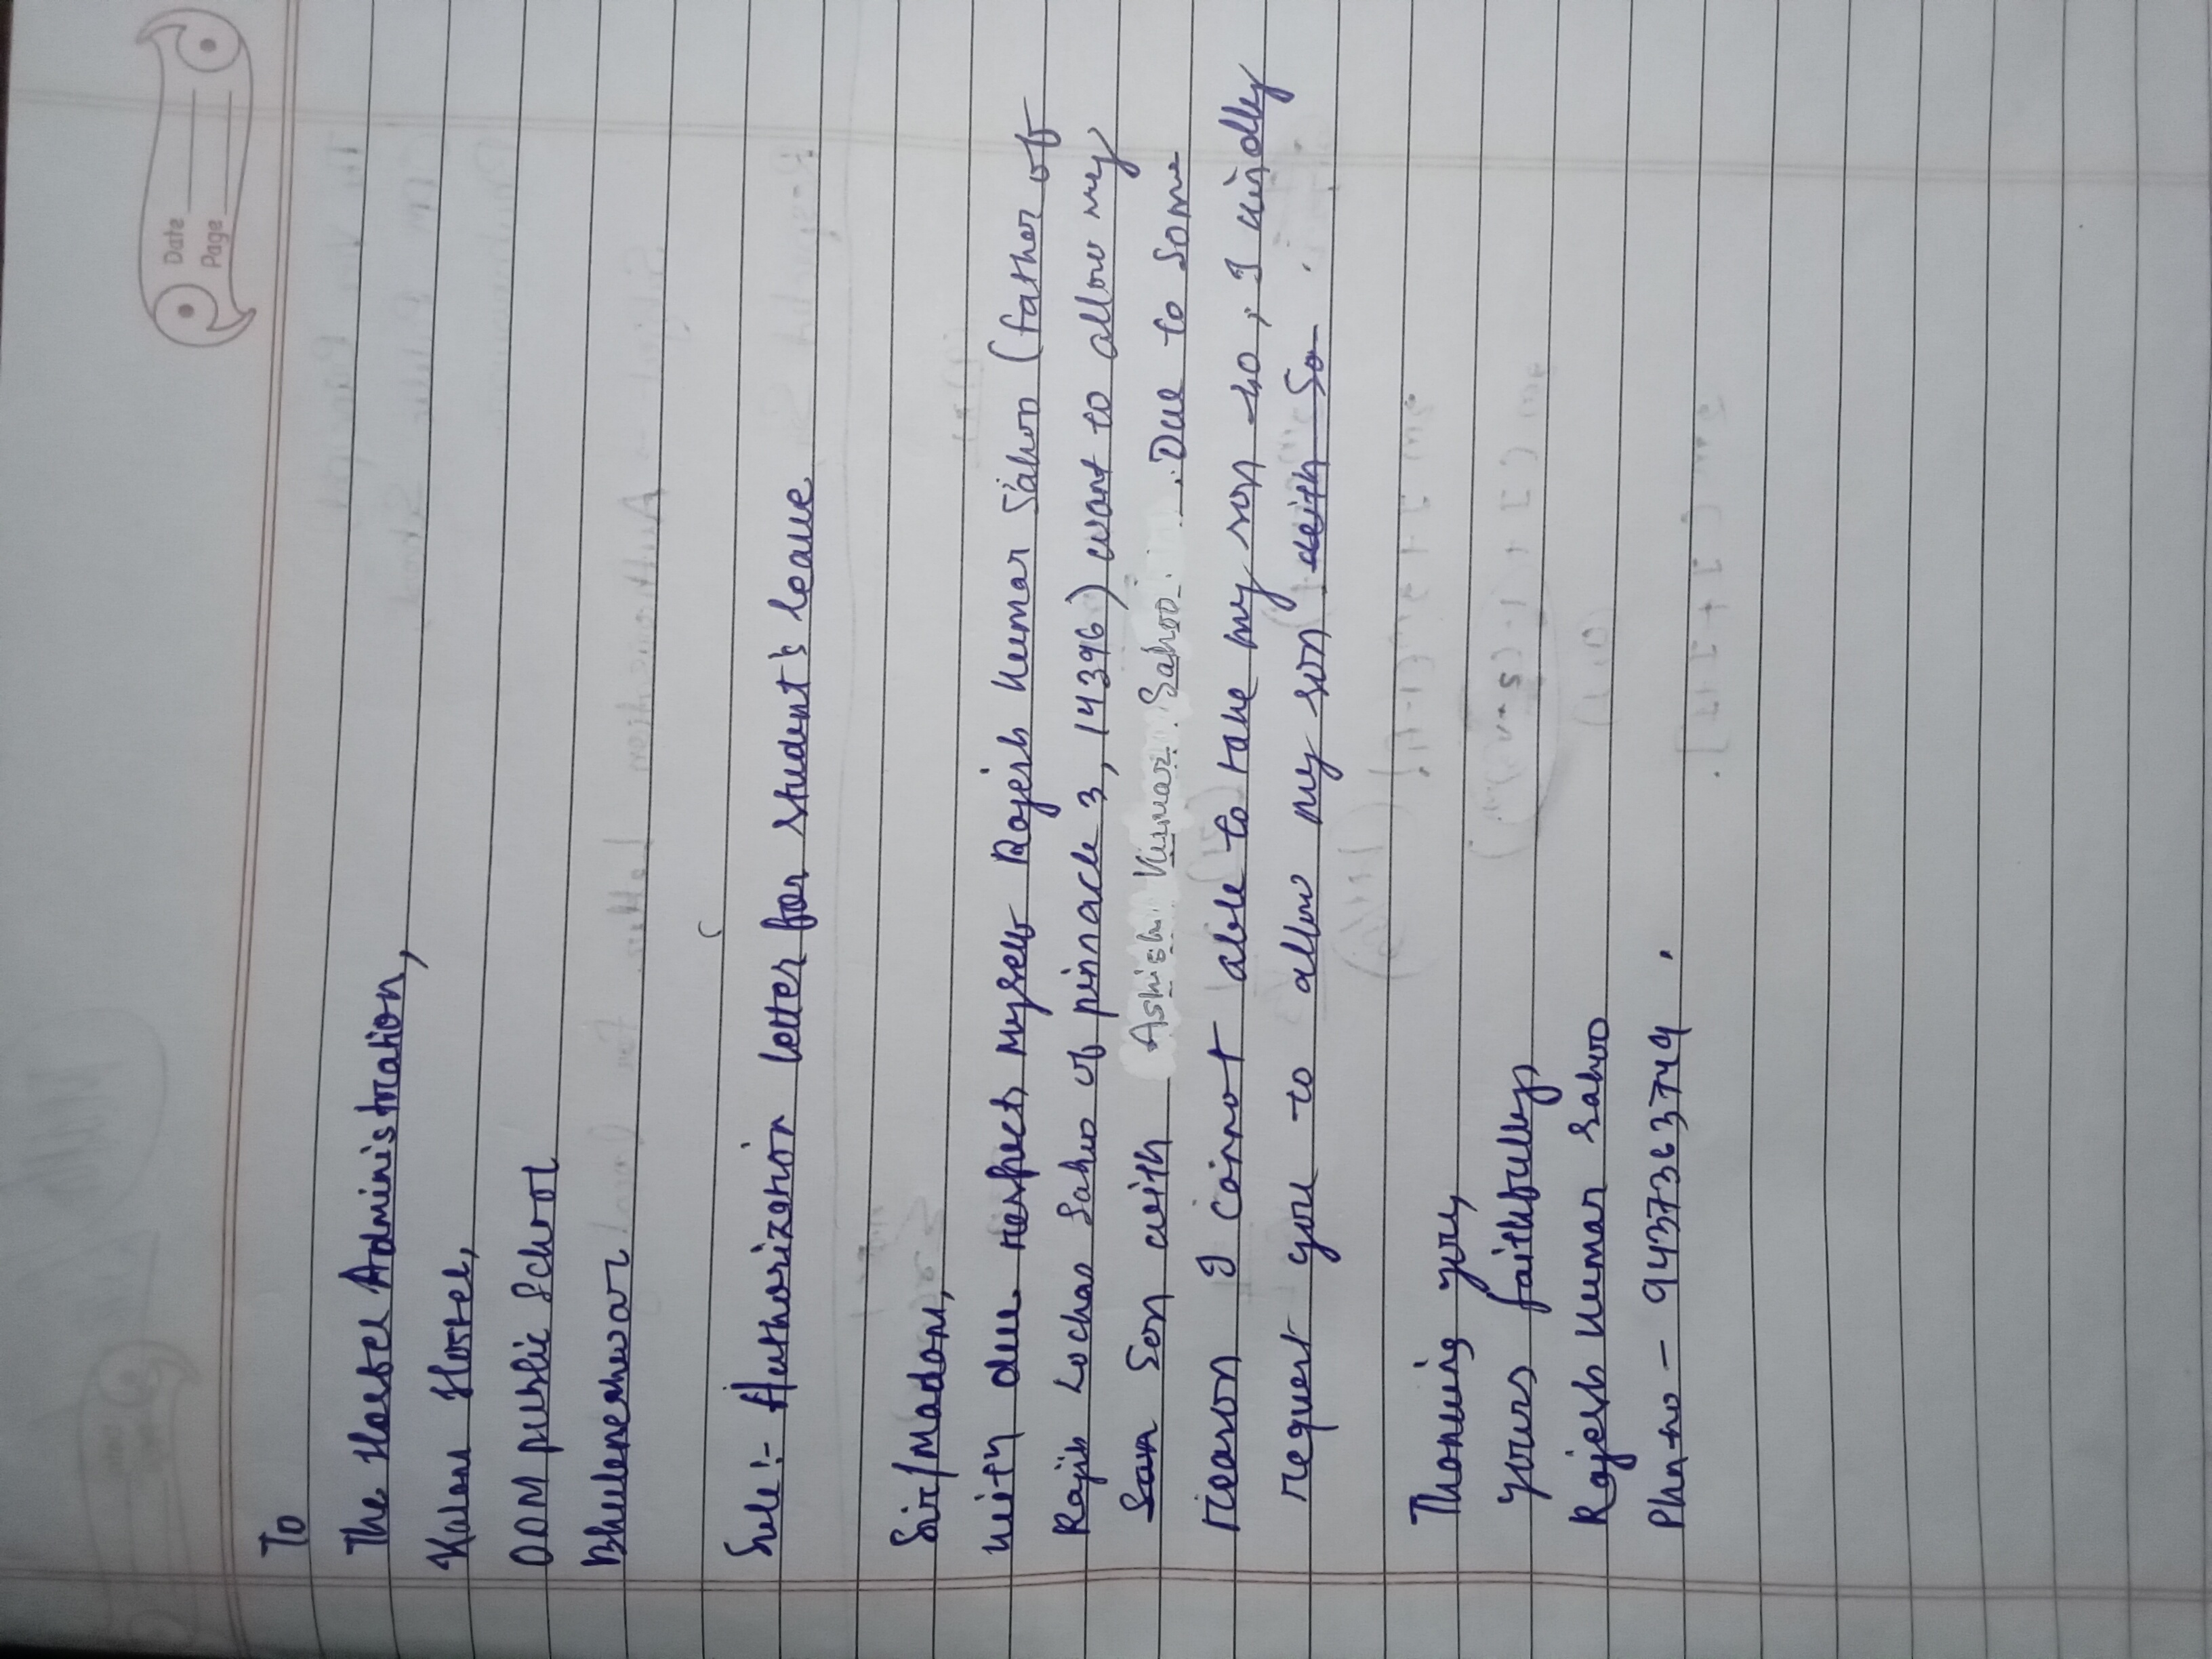 Date
Page
To
The Hostel Administration,
Kalam Hostel,
ODM public School
Bhubeneshwar
Sub :- Authorization letter for student's leave
Sir/Madam,
With due respect, myself Rajesh Kumar Sahoo (father of
Rajib Lochan Sahoo of pinnacle 3, 14396) want to allow my
Son with Ashish Kumar Sahoo. Due to some
reason I cannot able to take my son so, I kindly
request you to allow my son with So
Thanking you,
yours faithfully,
Rajesh Kumar Sahoo
Ph no - 9437363749.